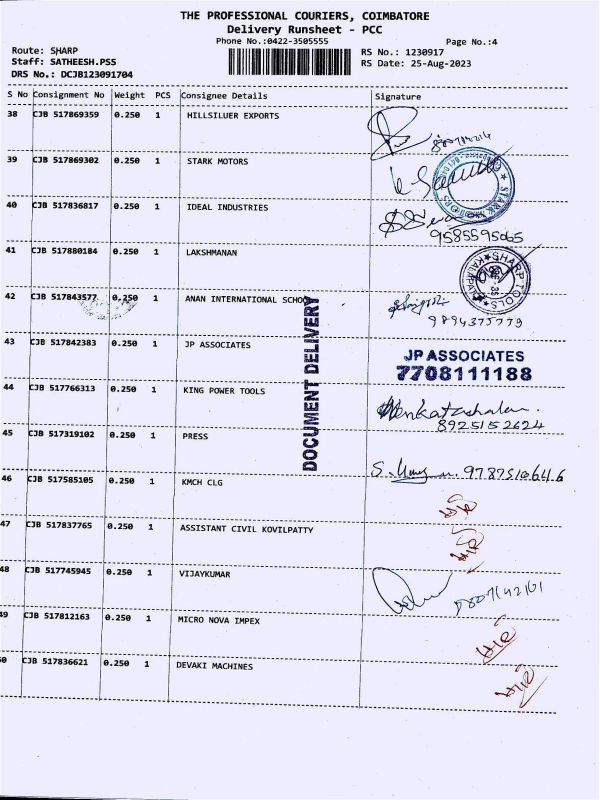 THE PROFESSIONAL COURIERS, COIMBATORE
Delivery Runsheet - PCC
Phone No.:0422-3505555 Page No.:4
Route: SHARP RS No.: 1230917
Staff: SATHEESH.PSS RS Date: 25-Aug-2023
DRS No.: DCJB123091704
S No Consignment No Weight PCS Consignee Details Signature
38 CJB 517869359 0.250 1 HILLSILUER EXPORTS
39 CJB 517869302 0.250 1 STARK MOTORS
STARK MOTORS
40 CJB 517836817 0.250 1 IDEAL INDUSTRIES
9585595065
41 CJB 517880184 0.250 1 LAKSHMANAN
SHARP TOOLS
42 CJB 517843577 0.250 1 ANAN INTERNATIONAL SCHOOL
9894375779
43 CJB 517842383 0.250 1 JP ASSOCIATES JP ASSOCIATES
7708111188
DOCUMENT DELIVERY
44 CJB 517766313 0.250 1 KING POWER TOOLS Venkatachalam.
8925152624
45 CJB 517319102 0.250 1 PRESS
9787510646
46 CJB 517585105 0.250 1 KMCH CLG
47 CJB 517837765 0.250 1 ASSISTANT CIVIL KOVILPATTY
48 CJB 517745945 0.250 1 VIJAYKUMAR
49 CJB 517812163 0.250 1 MICRO NOVA IMPEX
0 CJB 517836621 0.250 1 DEVAKI MACHINES